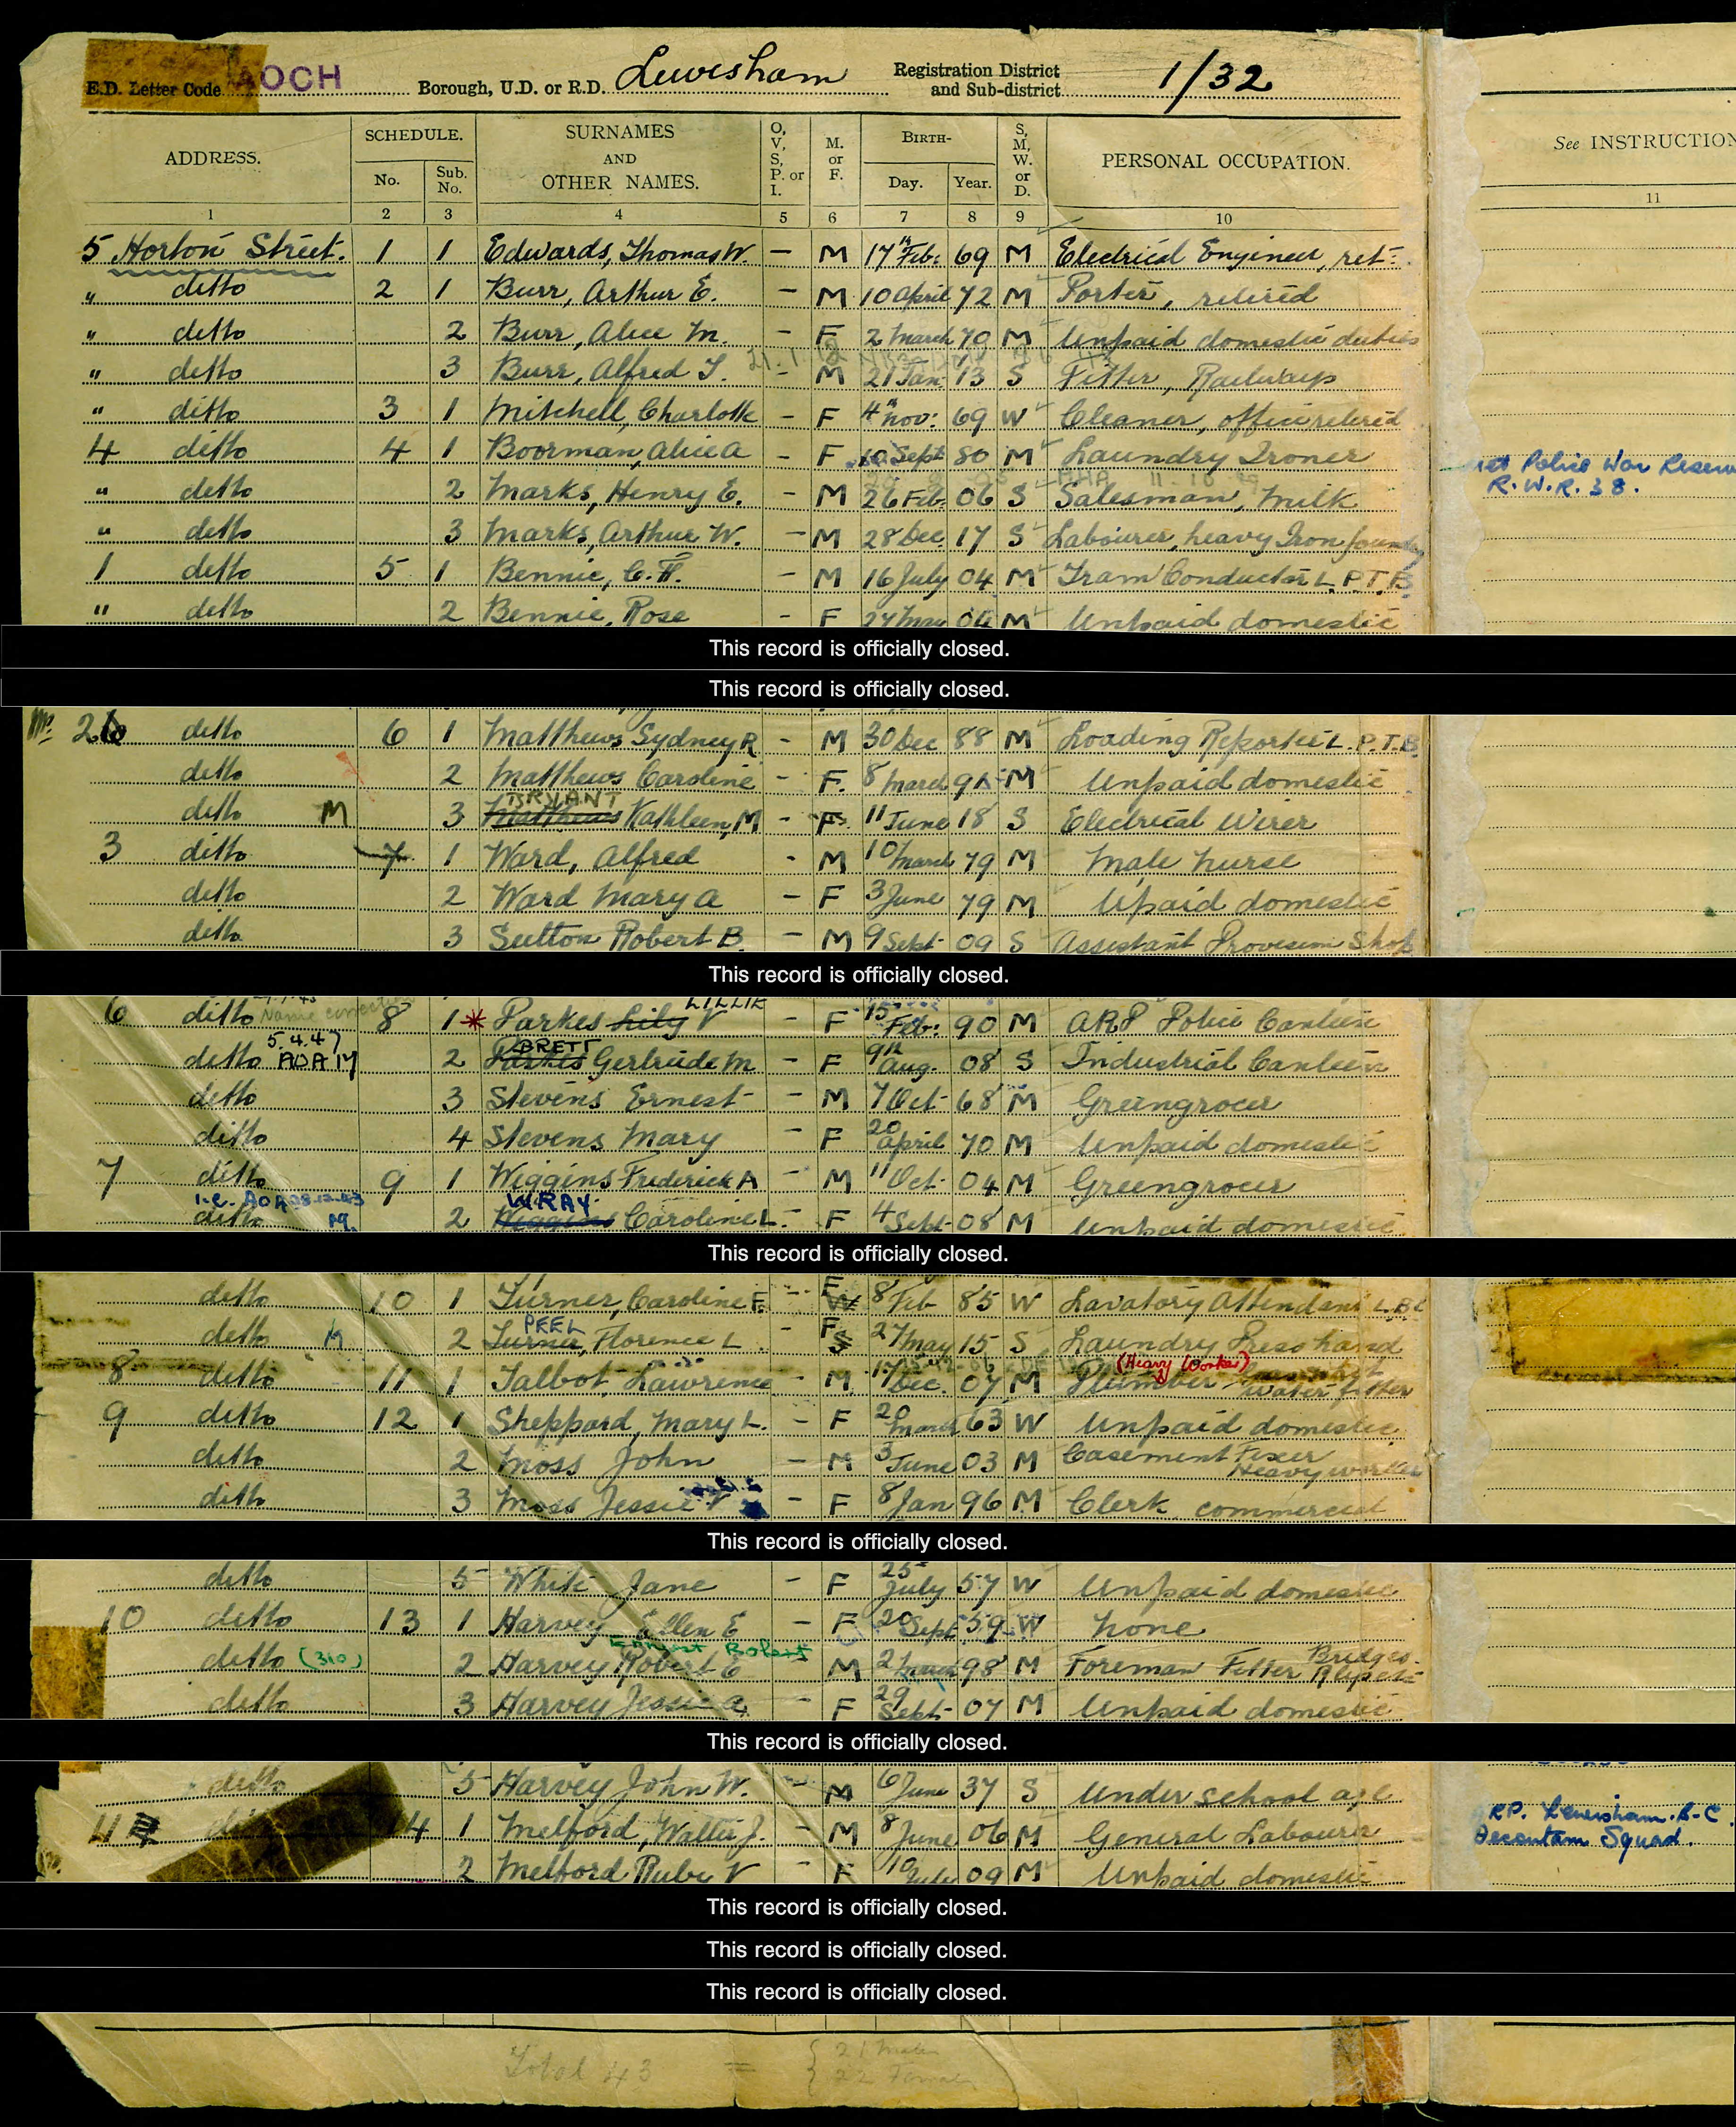 E.D. Letter Code AOCH Borough, U.D. or R.D. Lewisham Registration District and Sub-district 1/32
ADDRESS. SCHEDULE. No. Sub. No. SURNAMES AND OTHER NAMES. O, V, S, P. or I. M. or F. BIRTH- Day. Year. S, M, W. or D. PERSONAL OCCUPATION. See INSTRUCTION
1 2 3 4 5 6 7 8 9 10 11
5 Horton Street. 1 1 Edwards, Thomas W. - M 17th Feb: 69 M Electrical Engineer, ret:
" ditto 2 1 Burr, Arthur E. - M 10 April 72 M Porter, retired
" ditto 2 Burr, Alice M. - F 2 March 70 M Unpaid domestic duties
" ditto 3 Burr, Alfred T. - M 21 Jan: 13 S Fitter, Railways
" ditto 3 1 Mitchell, Charlotte - F 4th Nov: 69 W Cleaner, office retired
4 ditto 4 1 Boorman, Alice A - F 10 Sept 80 M Laundry Ironer
" ditto 2 Marks, Henry E. - M 26 Feb: 06 S Salesman, Milk Met Police War Reserve
R.W.R. 38.
" ditto 3 Marks, Arthur W. - M 28 Dec. 17 S Labourer, heavy Iron foundry
1 ditto 5 1 Bennie, C. H. - M 16 July 04 M Tram Conductor L.P.T.B.
" ditto 2 Bennie, Rose - F 27 May 04 M Unpaid domestic
This record is officially closed.
This record is officially closed.
2 ditto 6 1 Matthews Sydney R - M 30 Dec 88 M Loading Reporter L.P.T.B.
ditto 2 Matthews Caroline - F. 8 March 91 M Unpaid domestic
BRYANT
ditto M 3 Matthews Kathleen, M - F 11 June 18 S Electrical Wirer
3 ditto 7 1 Ward, Alfred - M 10 March 79 M Male Nurse
ditto 2 Ward Mary A - F 3 June 79 M Upaid domestic
ditto 3 Sutton Robert B. - M 9 Sept 09 S Assistant Provision Shop
This record is officially closed.
Name correction LILLIE
6 ditto 8 1 * Parkes Lily V - F 15 Feb: 90 M ARP Police Canteen
5.4.47 BRETT
ditto AOA M 2 Parkes Gertrude M - F 9th Aug. 08 S Industrial Canteen
ditto 3 Stevens Ernest - M 7 Oct 68 M Greengrocer
ditto 4 Stevens Mary - F 20 April 70 M Unpaid domestic
7 ditto 9 1 Wiggins Frederick A - M 11 Oct 04 M Greengrocer
WRAY
ditto 2 Wiggins Caroline L. - F 4 Sept 08 M Unpaid domestic
This record is officially closed.
ditto 10 1 Turner, Caroline F. - F 8 Feb 85 W Lavatory Attendant L.B.C
PEEL
ditto M 2 Turner, Florence L. - F 27 May 15 S Laundry Press hand
(Heavy Worker)
8 ditto 11 1 Talbot, Lawrence - M 17 Dec. 07 M Plumber water fitter
9 ditto 12 1 Sheppard, Mary L. - F 20 March 63 W Unpaid domestic
ditto 2 Moss John - M 3 June 03 M Casement Fixer Heavy worker
ditto 3 Moss Jessie V - F 8 Jan 96 M Clerk commercial
This record is officially closed.
ditto 5 White Jane - F 25 July 57 W Unpaid domestic
10 ditto 13 1 Harvey Ellen E - F 20 Sept 59 W None
Ernest Robert
ditto (310) 2 Harvey Robert E M 2 March 98 M Foreman Fitter Bridges
ditto 3 Harvey Jessie A. - F 29 Sept 07 M Unpaid domestic
This record is officially closed.
ditto 5 Harvey John W. - M 6 June 37 S Under school age
11 4 1 Melford, Walter J. - M 8 June 06 M General Labourer ARP. Lewisham. B-C.
Decontam Squad.
2 Melford Ruby V - F 10 July 09 M Unpaid domestic
This record is officially closed.
This record is officially closed.
This record is officially closed.
Total 43 = { 21 Males
22 Females